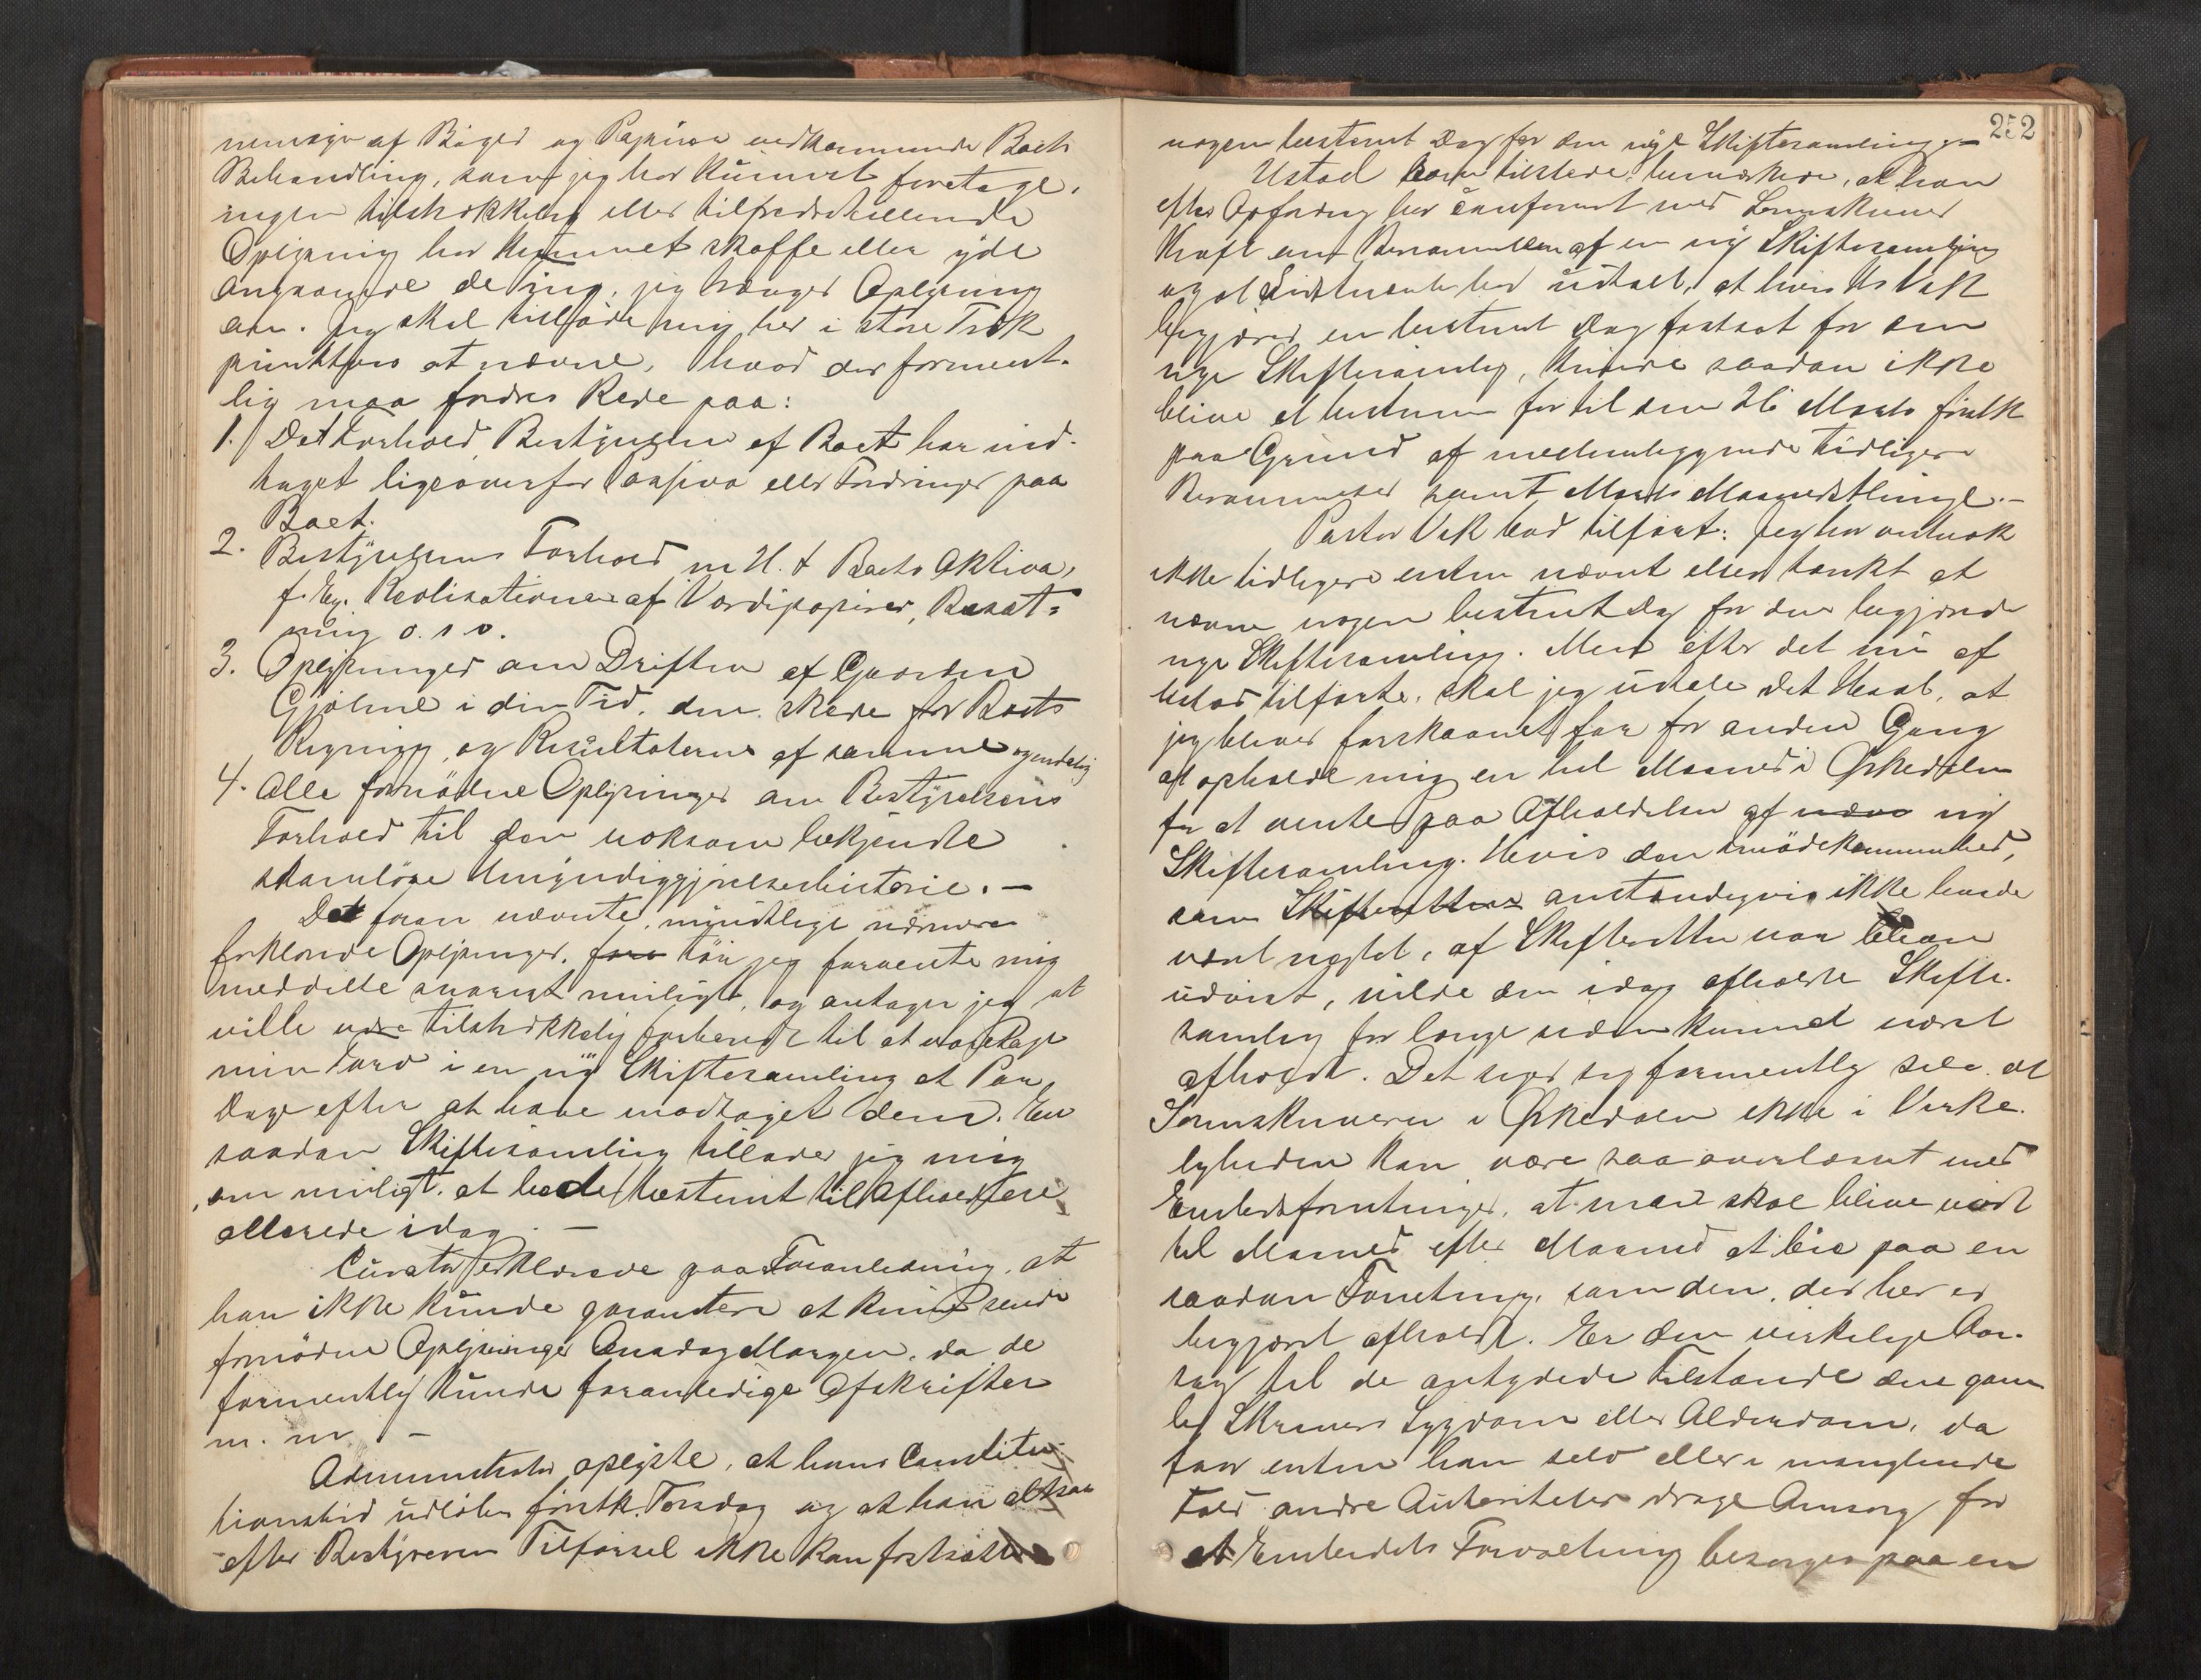 af Bøger og Papirer vedkommende Boets
Behandling, som jeg har kunnet foretage,
ingen tilstrækkelig eller tilfredsstillende
Oplysning har kunnet skaffe eller yde
angaaende de Ting, jeg trænger Oplysning
om. Jeg skal tillade mig her i store Træk
punktvis at nævne, hvad der forment-
lig maa fordres Rede paa:
1. Det Forhold, Bestyrelsen af Boet har ind-
taget ligeoverfor Passiva eller Fordringer paa
Boet.
2. Bestyrelsens Forhold m. H. t. Boets Aktiva,
f. Ex. Realisationen af Værdipapirer, Besæt-
ning o. s. v.
3. Oplysninger om Driften af Gaarden
Gjølme i den Tid, den skede for Boets
Regning, og Resultaterne af samme og endelig
4. Alle fornødne Oplysninger om Bestyrelsens
Forhold til den noksom bekjendte
skamløse Umyndiggjørelseshistorie. —
De foran nævnte, mundtlige nærmere
forklarende Oplysninger, tør jeg forvente mig
meddelte snarest muligt, og antager jeg at
ville være tilstrækkelig forberedt til at varetage
min Tarv i en ny Skiftesamling et Par
Dage efter at have modtaget dem. En
saadan Skiftesamling tillader jeg mig
, om muligt, at bede bestemt til Afholdelse
allerede idag. —
Curator erklærede paa Foranledning, at
han ikke kunde garantere at kunne sende
fornødne Oplysninger Onsdag Morgen, da de
formentlig kunde foranledige Afskrifter
m. m. —
Administrator oplyste, at hans Constitu-
tionstid udløber førstk. Torsdag og at han altsaa
efter Bestyreren Tilførsel ikke kan fastsætte
252
nogen bestemt Dag for den nye Skiftesamling. —
Ustad som tilstede bemærkede, at han
efter Opfordring har confereret med Sorenskriver
Kraft om Berammelsen af en ny Skiftesamling
og at har udtalt, at hvis Hr Vek
begjærer en bestemt Dag fastsat for den
nye Skiftesamling, kunde saadan ikke
blive at bestemme før til den 26 Marts førstk
paa Grund af mellemliggende tidligere
Berammelser samt Marts Maanedsthinge. —
Pastor Vek bad tilført: Jeg har vistnok
ikke tidligere enten nævnt eller tænkt at
nævne nogen bestemt Dag for den begjærede
nye Skiftesamling. Men efter det nu af
Ustad tilførte, skal jeg udtale det Haab, at
jeg bliver forskaanet for for anden Gang
at opholde mig en hel Maaned i Ørkedalen
for at vente paa Afholdelsen af ny
Skiftesamling. Hvis den Imødekommenhed,
som anstændigvis ikke burde
været nægtet, af Skifteretten var bleven
udvist, vilde den idag afholdte Skifte-
samling for længe siden kunnet været
afholdt. Det siger sig formentlig selv, at
Sorenskriveren i Ørkedalen ikke i Virke-
ligheden kan være saa overlæsset med
Embedsforretninger, at man skal blive nødt
til Maaned efter Maaned at bie paa en
saadan Forretning, som den, der her er
begjært afholdt. Er den virkelige Aar-
sag til de antydede Tilstande den gam-
le Skrivers Sygdom eller Alderdom, da
faar enten han selv eller i manglende
Fald andre Autoriteter drage Omsorg for
at Embedets Forvaltning besørges paa en